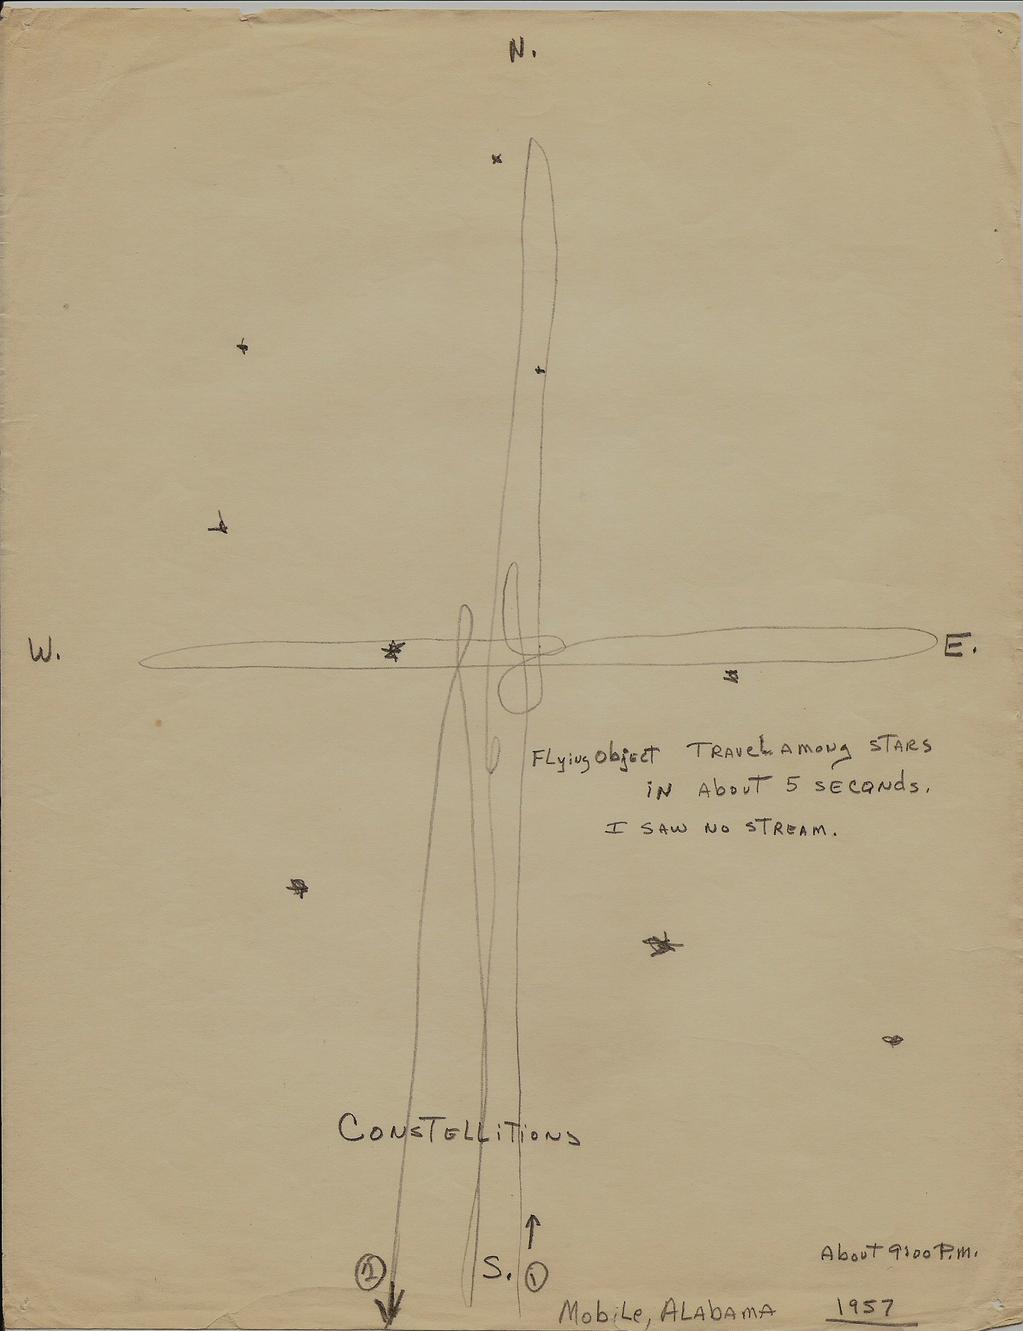 N.
W.
E.
FLying Object TRAVEL AMONG STARS
iN About 5 SECONDS.
I SAW NO STREAM.
CONSTELLiTiONS
About 9:00 P.M.
2 S. 1
MobiLe, ALAbAMA 1957